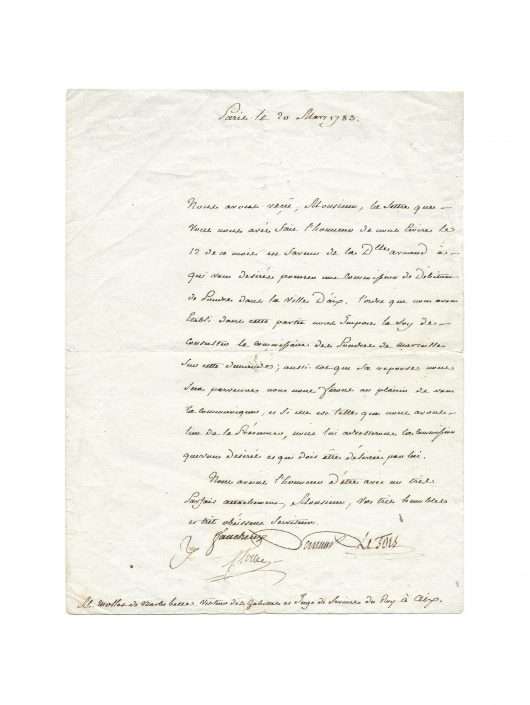 Paris le 20 Mars 1783.
Nous avons reçû, Monsieur, la lettre que
Vous nous avés fait l'honneur de nous écrire le
12 de ce mois en faveur de la Dlle armand à
qui vous desirés procurer une Commission de Débitante
de Poudre dans la Ville D'aix. l'ordre que nous avons
Etabli dans cette partie nous Impose la Loy de
Consulter le Commissaire des Poudres de Marseille
sur cette demande; aussitot que sa reponse nous
sera parvenue nous nous ferons un plaisir de vous
la communiquer, et si elle est telle que nous avons
lieu de le Présumer, nous lui adresserons la Commission
que vous desirés et qui doit être délivrée par lui.
Nous avons l'honneur d'être avec un très
Parfait attachement, Monsieur, Vos très humbles
et très obéissans Serviteurs.
Faucheux Le Fors
M. de Visiteur des Gabelles et Juge de du Roy à Aix.